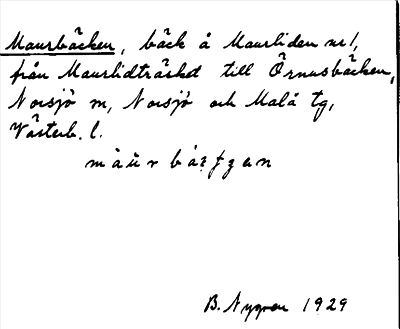 Maurbäcken, bäck å Maurliden nr 1,
från Maurlidträsket till Örnusbäcken,
Norsjö sn, Norsjö och Malå tg,
Västerb. l.
B. Nygren 1929